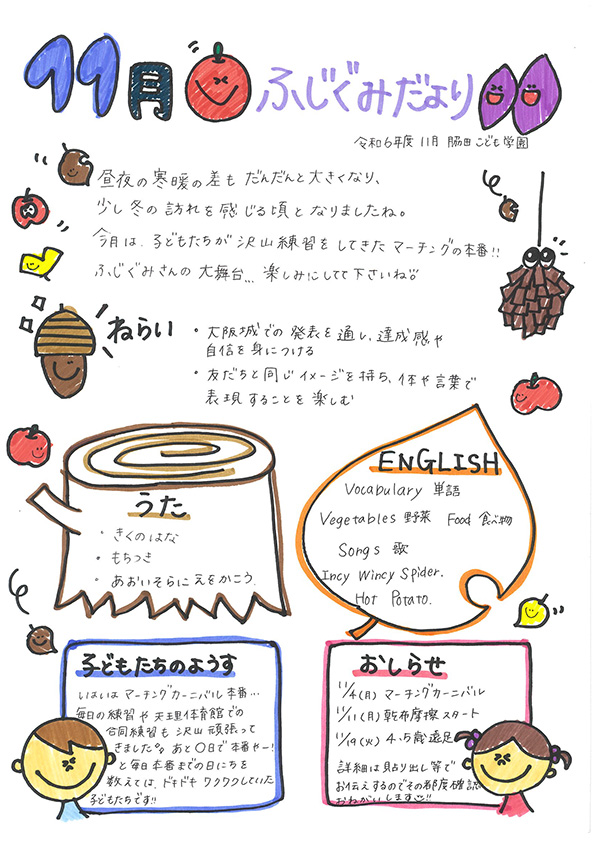 11月 ふじぐみだより
令和6年度 11月 脇田こども学園
昼夜の寒暖の差も だんだんと大きくなり、
少し冬の訪れを感じる頃となりましたね。
今月は、子どもたちが沢山練習をしてきた マーチングの本番!!
ふじぐみさんの 大舞台… 楽しみにしてて下さいね!!
ねらい
・大阪城での発表を通し、達成感や
自信を身につける
・友だちと同じイメージを持ち、体や言葉で
表現することを楽しむ
うた
・きくのはな
・もちつき
・あおいそらにえをかこう.
ENGLISH
Vocabulary 単語
Vegetables 野菜 Food 食べ物
Songs 歌
Incy Wincy Spider.
Hot Potato.
子どもたちのようす
いよいよ マーチングカーニバル本番…
毎日の練習や 天理体育館での
合同練習も沢山 頑張って
きました!。あと〇日で本番やー!
と毎日 本番までの日にちを
数えては、ドキドキ ワクワクしていた
子どもたちです!!
おしらせ
11/4(月) マーチングカーニバル
11/11(月) 乾布摩擦 スタート
11/19(火) 4.5歳遠足
詳細は貼り出し等で
お伝えするのでその都度確認
おねがいします!!